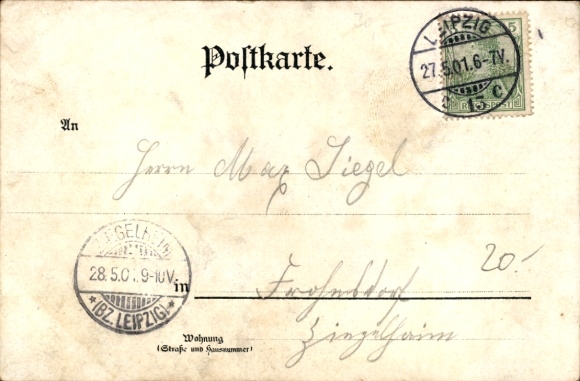 30.-
LEIPZIG
27.5.01.6-7V.
13 c
5
REICHSPOST
Postkarte.
An
Herrn Max Siegel
ZIEGELHEIM
28.5.01.9-10V.
*(BZ. LEIPZIG)*
in
Frohnsdorf
20.-
Ziegelheim
Wohnung
(Straße und Hausnummer)